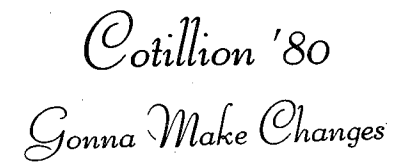 Cotillion '80
Gonna Make Changes